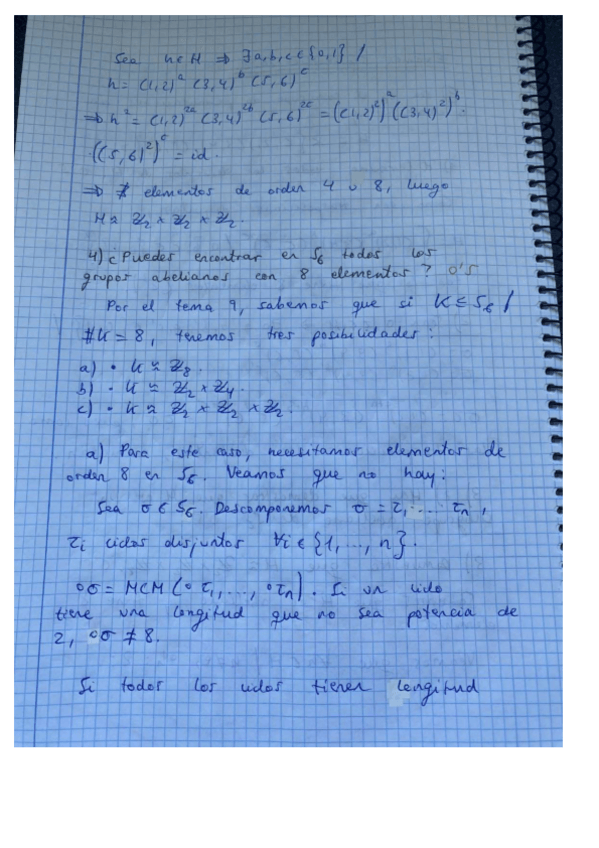 Sea h∈H ⇒ ∃a,b,c∈{0,1} /
h = (1,2)^a (3,4)^b (5,6)^c
⇒ h² = (1,2)^{2a} (3,4)^{2b} (5,6)^{2c} = ((1,2)²)^a ((3,4)²)^b ·
((5,6)²)^c = id.
⇒ ∄ elementos de orden 4 u 8, luego
H ≈ ℤ/2 × ℤ/2 × ℤ/2.
4) ¿Puedes encontrar en S6 todos los
grupos abelianos con 8 elementos? 0'5
Por el tema 9, sabemos que si K ≤ S6 /
#K = 8, tenemos tres posibilidades:
a) • K ≈ ℤ/8.
b) • K ≈ ℤ/2 × ℤ/4.
c) • K ≈ ℤ/2 × ℤ/2 × ℤ/2.
a) Para este caso, necesitamos elementos de
orden 8 en S6. Veamos que no hay:
Sea σ ∈ S6. Descomponemos σ = τ1 ... τn,
τi ciclos disjuntos ∀i ∈ {1, ..., n}.
oσ = MCM (oτ1, ..., oτn). Si un ciclo
tiene una longitud que no sea potencia de
2, oσ ≠ 8.
Si todos los ciclos tienen longitud